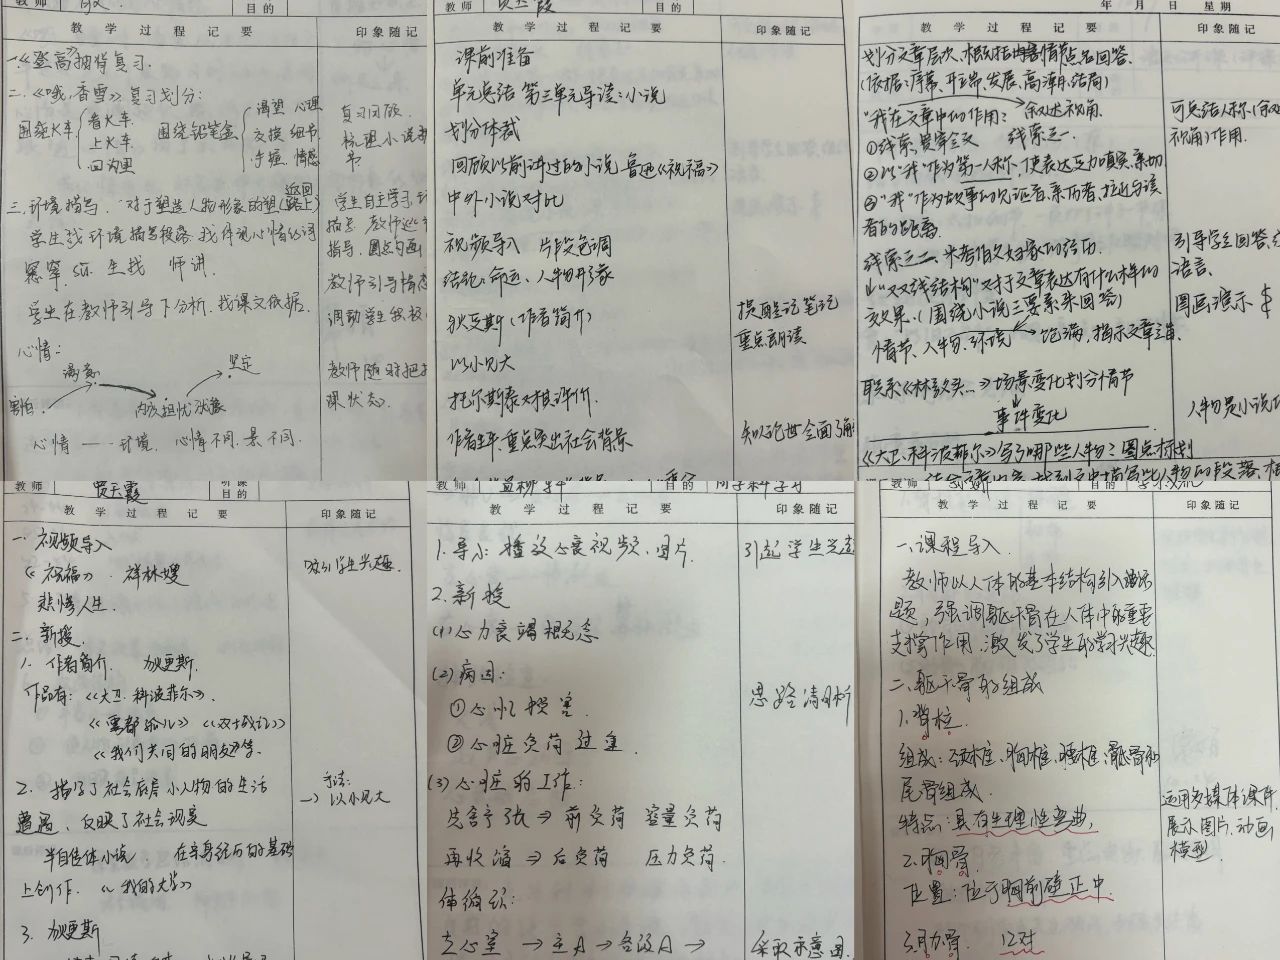 教师
目的
教 学 过 程 记 要
印象随记
一、《登高》抽背复习.
二、《哦,香雪》复习划分:
围绕火车 看火车. 上火车. 回沟里
围绕铅笔盒 渴望 心理 交换 细节. 情感
复习回顾.
梳理小说
三、环境描写. 对于塑造人物形象的塑 (返回路上)
学生找环境描写段落. 找体现心情的词
窸窣 sū. 生找 师讲.
学生在教师引导下分析. 找课文依据.
学生自主学习
描写. 教师巡
指导. 圈点勾画
教师引导情
调动学生积极
心情:
满意 坚定
害怕.
心情 —— 环境. 心情不同. 景不同.
教师随时把
课状态
教师
目的
教 学 过 程 记 要
印象随记
课前准备
单元总结 第三单元导读:小说
划分体裁
回顾以前讲过的小说 鲁迅《祝福》
中外小说对比
视频导入 片段色调
结论:命运、人物形象
狄更斯(作者简介)
以小见大
托尔斯泰对其评价.
作者生平.重点突出社会背景
提醒记笔记
重点朗读
知人论世全面了解
年 月 日 星期
教 学 过 程 记 要
印象随记
划分文章层次,概括情节点名回答.
(依据:序幕、开端、发展、高潮、结局)
"我在文章中的作用? 叙述视角.
①线索,贯穿全文 线索之一.
②以"我"作为第一人称,使表达更加真实、亲切
③"我"作为故事的见证者,亲历者,拉近与读
者的距离.
线索之二、米考伯夫妇家的经历.
"双线结构"对于文章表达有什么样的
效果.(围绕小说三要素来回答)
情节、人物、环境 饱满,揭示文章主旨.
联系《林教头…》场景变化划分情节
事件变化
《大卫·科波菲尔》写了哪些人物?圈点标划
可总结人称(叙
视角)作用.
引导学生回答,
语言.
图画演示
人物是小说
教师 贾玉霞
听课
目的
教 学 过 程 记 要
印象随记
一、视频导入
《祝福》. 祥林嫂
悲惨人生.
吸引学生兴趣.
二、新授.
1. 作者简介. 狄更斯.
作品有:《大卫·科波菲尔》.
《雾都孤儿》《双城记》
《我们共同的朋友》等.
2. 描写了社会底层小人物的生活
遭遇、反映了社会现实
半自传体小说:在亲身经历的基础
上创作.《我的大学》
3. 狄更斯
手法:
→ 以小见大
教师
目的
教 学 过 程 记 要
印象随记
1. 导入:播放心衰视频、图片.
引起学生兴趣
2. 新授
(1)心力衰竭概念
(2)病因:
①心肌损害.
②心脏负荷过重.
思路清晰
(3)心脏的工作:
先舒张 → 前负荷 容量负荷
再收缩 → 后负荷 压力负荷.
体循环:
左心室 → 主A → 各级A →
采取示意图.
教师
目的
教 学 过 程 记 要
印象随记
一、课程导入.
教师以人体的基本结构引入话
题,强调躯干骨在人体中的重要
支撑作用.激发了学生的学习兴趣.
二、躯干骨的组成
1.脊柱.
组成:颈椎、胸椎、腰椎、骶骨和
尾骨组成.
特点:具有生理性弯曲,
2.胸骨.
位置:位于胸前壁正中.
3.肋骨. 12对
运用多媒体课件
展示图片、动画,
模型.